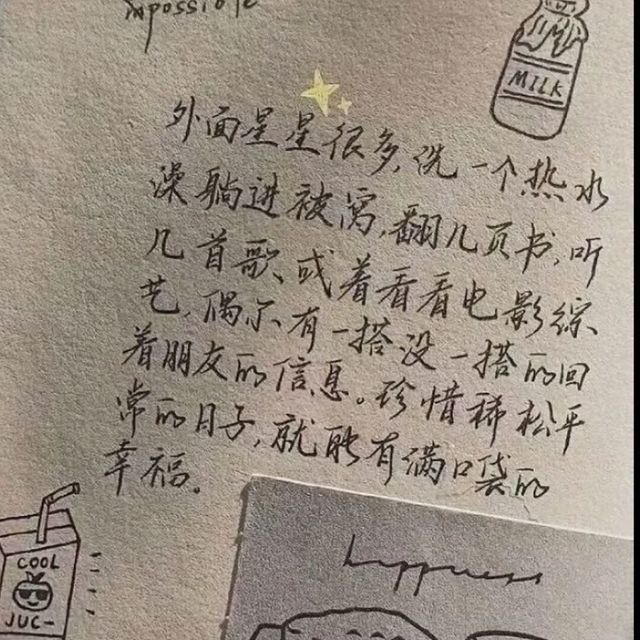 impossible
MILK
外面星星很多,洗一个热水
澡躺进被窝,翻几页书,听
几首歌、或着看看电影综
艺,偶尔有一搭没一搭的回
着朋友的信息。珍惜稀松平
常的日子,就能有满口袋的
幸福。
COOL
JUC-
happness